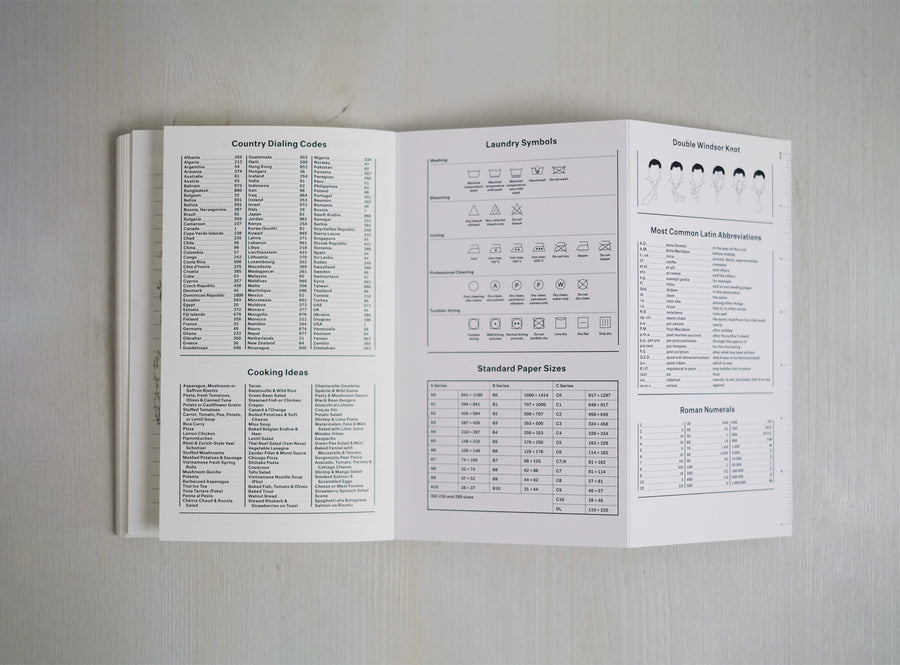 Country Dialing Codes
Albania 355
Algeria 213
Argentina 54
Armenia 374
Australia 61
Austria 43
Bahrain 973
Bangladesh 880
Belgium 32
Belize 501
Bolivia 591
Bosnia, Herzegovina 387
Brazil 55
Bulgaria 359
Cameroon 237
Canada 1
Cape Verde Islands 238
Chad 235
Chile 56
China 86
Colombia 57
Congo 242
Costa Rica 506
Côte d'Ivoire 225
Croatia 385
Cuba 53
Cyprus 357
Czech Republic 420
Denmark 45
Dominican Republic 1809
Ecuador 593
Egypt 20
Estonia 372
Fiji Islands 679
Finland 358
France 33
Germany 49
Ghana 233
Gibraltar 350
Greece 30
Guadeloupe 590
Guatemala 502
Haiti 509
Hong Kong 852
Hungary 36
Iceland 354
India 91
Indonesia 62
Iran 98
Iraq 964
Ireland 353
Israel 972
Italy 39
Japan 81
Jordan 962
Kenya 254
Korea (South) 82
Kuwait 965
Latvia 371
Lebanon 961
Libya 218
Liechtenstein 423
Lithuania 370
Luxembourg 352
Macedonia 389
Madagascar 261
Malaysia 60
Maldives 960
Malta 356
Martinique 596
Mexico 52
Micronesia 691
Moldova 373
Monaco 377
Mongolia 976
Morocco 212
Namibia 264
Nauru 674
Nepal 977
Netherlands 31
New Zealand 64
Nicaragua 505
Nigeria 234
Norway 47
Pakistan 92
Panama 507
Paraguay 595
Peru 51
Philippines 63
Poland 48
Portugal 351
Reunion 262
Romania 40
Russia 7
Saudi Arabia 966
Senegal 221
Serbia 381
Seychelles Republic
Sierra Leone
Singapore 65
Slovak Republic
Slovenia 386
Spain 34
Sri Lanka 94
Sudan 249
Swaziland 268
Sweden 46
Switzerland 41
Syria 963
Taiwan 886
Thailand 66
Tunisia 216
Turkey 90
UAE 971
UK 44
Ukraine 380
Uruguay 598
USA 1
Venezuela 58
Vietnam 84
Yemen 967
Zambia 260
Zimbabwe 263
Cooking Ideas
Asparagus, Mushroom or
Saffron Risotto
Pasta, fresh Tomatoes,
Olives & Canned Tuna
Potato or Cauliflower Gratin
Stuffed Tomatoes
Carrot, Tomato, Pea, Potato,
or Leek Soup
Rice Curry
Pizza
Lemon Chicken
Flammkuchen
Rösti & Zurich-Style Veal
Schnitzel
Stuffed Mushrooms
Mashed Potatoes & Sausage
Vietnamese fresh Spring
Rolls
Mushroom Quiche
Polenta
Barbecued Asparagus
Thai Ice Tea
Tuna Tartare (Poke)
Penne al Pesto
Chèvre Chaud & Rucola
Salad
Tacos
Ratatouille & Wild Rice
Green Bean Salad
Steamed Fish or Chicken
Crepes
Canard à l'Orange
Boiled Potatoes & Soft
Cheese
Miso Soup
Baked Belgian Endive &
Ham
Lentil Salad
Thai Beef Salad (Yam Neua)
Vegetable Lasagna
Zander Fillet & Wheat Sauce
Chicago Pizza
Shiitake Pasta
Couscous
Tofu Salad
Vietnamese Noodle Soup
(Pho)
Baked Fish, Tomato & Olives
Baked Trout
Walnut Bread
Stewed Rhubarb &
Strawberries on Toast
Chantarelle Omelette
Spätzle & Wild Game
Pasta & Mushroom Sauce
Black Bean Burgers
Gnocchi al Limone
Coq au Vin
Potato Salad
Shrimp & Lime Pasta
Watermelon, Feta & Mint
Salad with Lime Juice
Moules-frites
Gazpacho
Green Pea Salad & Mint
Baked Fennel with
Mozzarella & Tomato
Gorgonzola Pear Pasta
Avocado, Tomato, Parsley &
Cottage Cheese
Shrimp & Mango Salad
Smoked Salmon &
Scrambled Eggs
Cheese or Meat Fondue
Strawberry Spinach Salad
Scone
Spaghetti alla Bolognese
Salmon on Risotto
Laundry Symbols
Washing
Maximal temperature wash
Maximal temperature mild wash
Maximal temperature very mild wash
Hand wash
Do not wash
Bleaching
Any bleach allowed
Non-chlorine bleach only
Do not bleach
Ironing
Iron
Iron max. 110°C
Iron max. 150°C
Iron max. 200°C
Do not iron
Steam
Do not steam
Professional Cleaning
Prof. cleaning, dry clean
A
Dry clean, any solvent
P
F
W
Do not dry clean
Tumbler drying
Tumble Drying
Mild drying process
Normal drying process
Do not tumble dry
Line dry
Dry flat
Drip dry
Standard Paper Sizes
A Series B Series C Series
A0 841 × 1189 B0 1000 × 1414 C0 917 × 1297
A1 594 × 841 B1 707 × 1000 C1 648 × 917
A2 420 × 594 B2 500 × 707 C2 458 × 648
A3 297 × 420 B3 353 × 500 C3 324 × 458
A4 210 × 297 B4 250 × 353 C4 229 × 324
A5 148 × 210 B5 176 × 250 C5 162 × 229
A6 105 × 148 B6 125 × 176 C6 114 × 162
A7 74 × 105 B7 88 × 125 C7/6 81 × 162
A8 52 × 74 B8 62 × 88 C7 81 × 114
A9 37 × 52 B9 44 × 62 C8 57 × 81
A10 26 × 37 B10 31 × 44 C9 40 × 57
ISO 216 and 269 sizes C10 28 × 40
DL 110 × 220
Double Windsor Knot
Most Common Latin Abbreviations
A.D. anno Domini in the year of the Lord
A.M. Ante Meridiem before midday
c., ca. circa around, about, approximately
cf. confer compare
et al. et alii and the others
etc. et cetera and the others
e.g. exempli gratia for example
ff. folio and on succeeding pages
ibid. ibidem in the same place
id. idem the same
i.a. inter alia among other things
i.e. id est that is, in other words
N.B. nota bene note well
op. cit. opere citato the work cited from the cited work
p.a. per annum yearly
P.M. Post Meridiem after midday
p.m. post mortem auctoris after the author's death
p.p., per pro per procurationem through the agency of
pro tem. pro tempore for the time being
P.S. post scriptum after what has been written
Q.E.D. quod erat demonstrandum which was to be demonstrated
q.v. quod videre which to see
R.I.P. requiescat in pace may he/she rest in peace
sic! sic thus
viz. videlicet namely, to wit, precisely, that is to say
vs or v. versus against
Roman Numerals